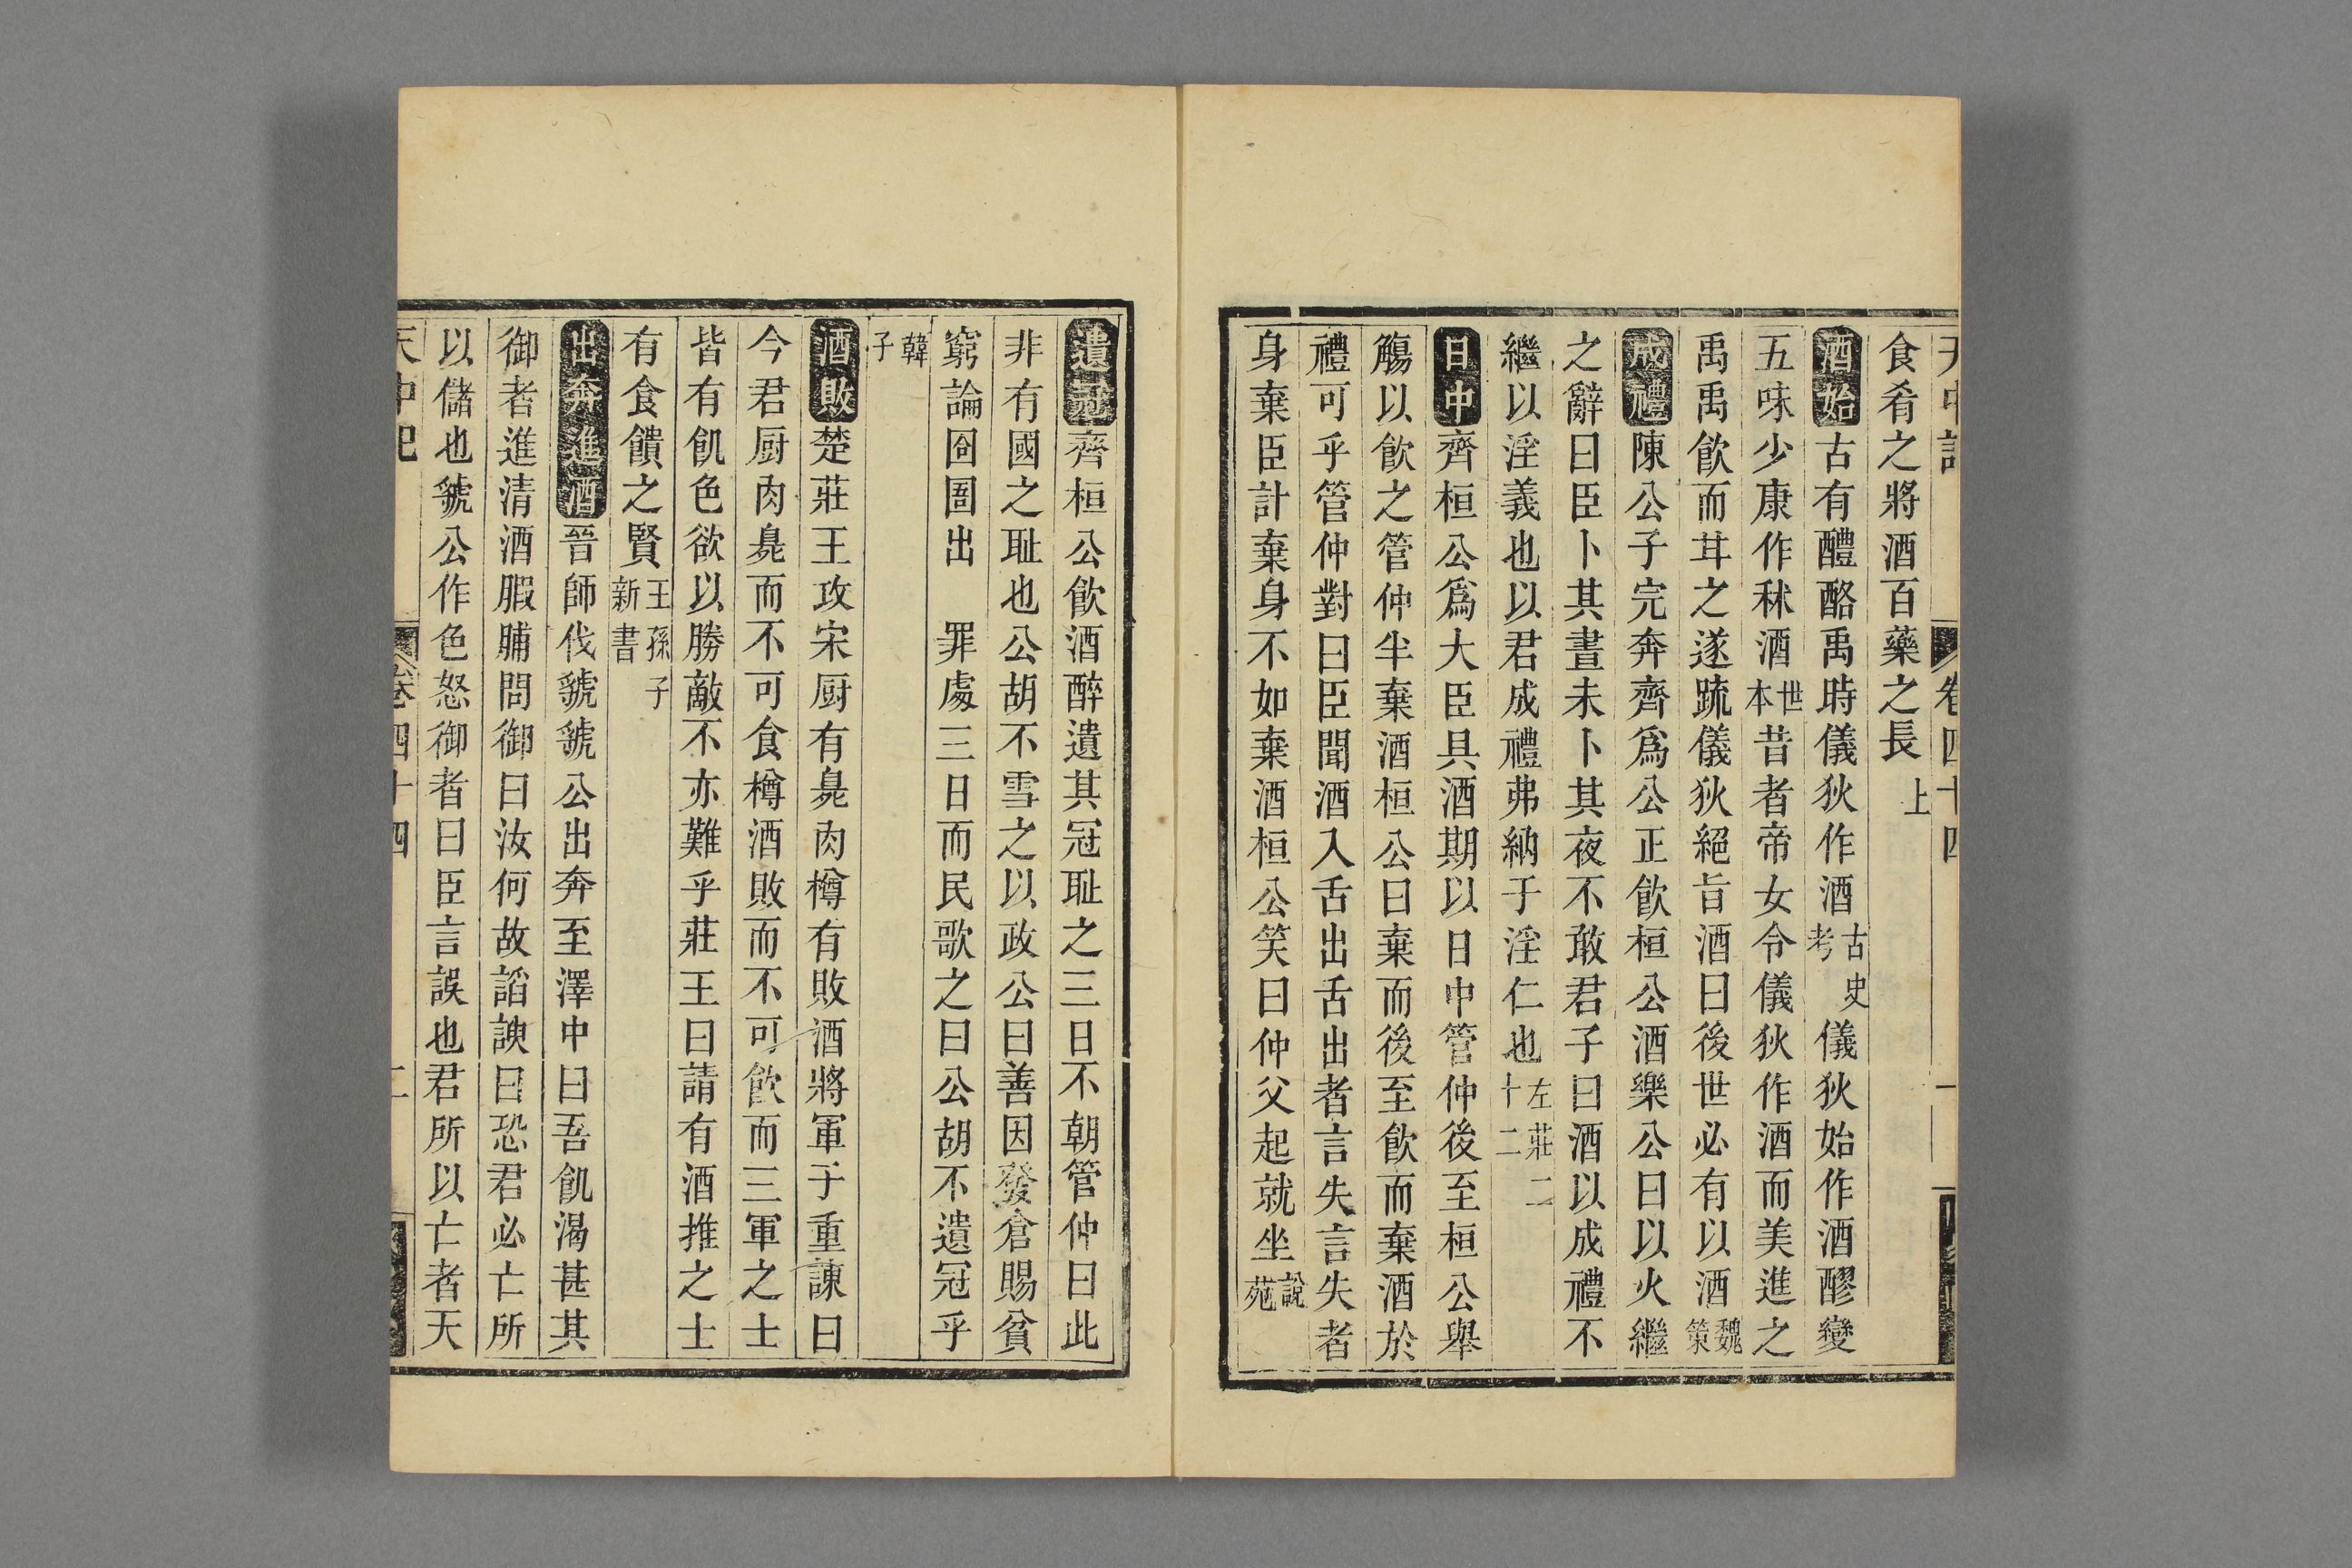 天中記 卷四十四 一
食肴之將酒百藥之長上
酒始古有醴酪禹時儀狄作酒古史考儀狄始作酒醪變
五味少康作秫酒世本昔者帝女令儀狄作酒而美進之
禹禹飲而甘之遂疏儀狄絕旨酒曰後世必有以酒魏策
成禮陳公子完奔齊爲公正飲桓公酒樂公曰以火繼
之辭曰臣卜其晝未卜其夜不敢君子曰酒以成禮不
繼以淫義也以君成禮弗納于淫仁也左莊二十二
日中齊桓公爲大臣具酒期以日中管仲後至桓公舉
觴以飲之管仲半棄酒桓公曰棄而後至飲而棄酒於
禮可乎管仲對曰臣聞酒入舌出舌出者言失言失者
身棄臣計棄身不如棄酒桓公笑曰仲父起就坐說苑
遺冠齊桓公飲酒醉遺其冠耻之三日不朝管仲曰此
非有國之耻也公胡不雪之以政公曰善因發倉賜貧
窮論囹圄出 罪處三日而民歌之曰公胡不遺冠乎
韓子
酒敗楚莊王攻宋厨有臰肉樽有敗酒將軍子重諫曰
今君厨肉臰而不可食樽酒敗而不可飲而三軍之士
皆有飢色欲以勝敵不亦難乎莊王曰請有酒推之士
有食饋之賢王孫子新書
出奔進酒晉師伐虢虢公出奔至澤中曰吾飢渴甚其
御者進清酒腶脯問御曰汝何故謟諛曰恐君必亡所
以儲也虢公作色怒御者曰臣言誤也君所以亡者天
天中記 卷四十四 二